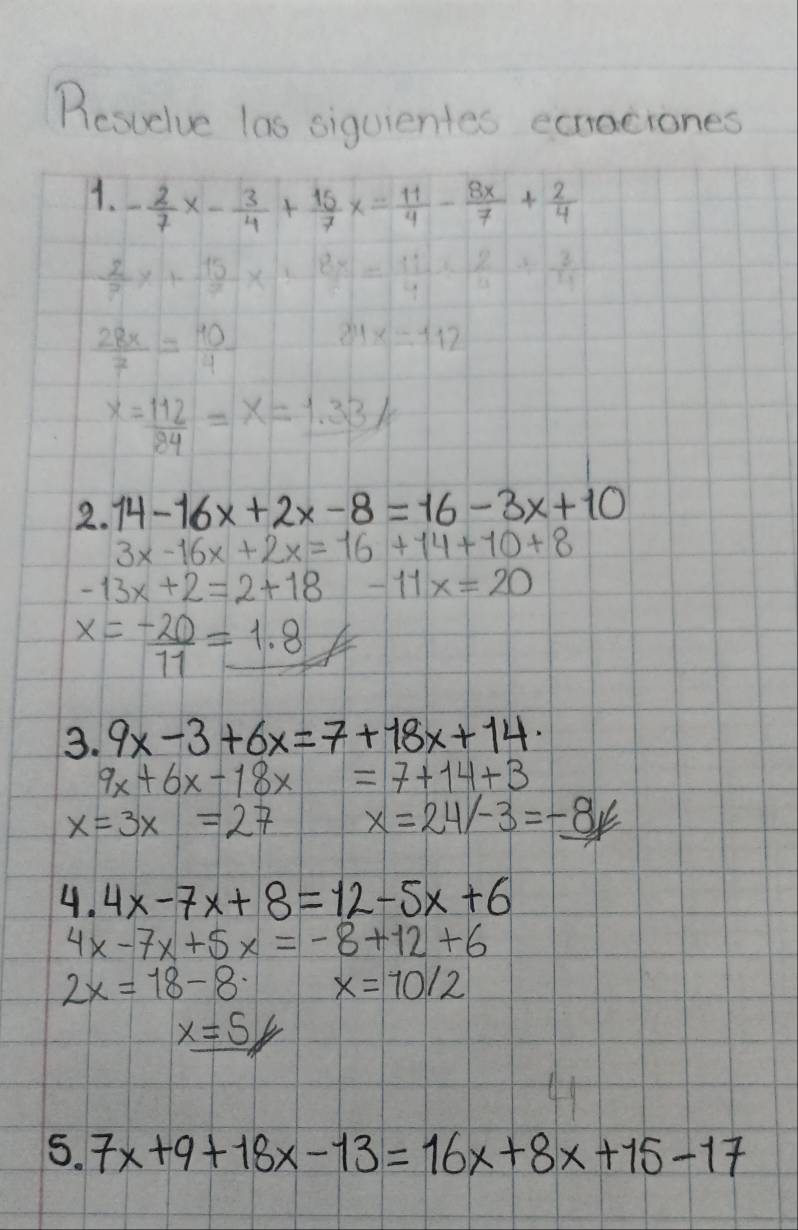 Resuelve las siguientes ecuaciones
1. -2/7 x - 3/4 + 15/7 x = 11/4 - 8x/7 + 2/4
2/7 x + 15/7 x + 8x = 11/4 + 2/4 + 3/4
28x/7 = 10/4 84x = 112
x = 112/84 = x = 1.33
2. 14 - 16x + 2x - 8 = 16 - 3x + 10
3x - 16x + 2x = 16 + 14 + 10 + 8
-13x + 2 = 2 + 18 -11x = 20
x = -20/11 = 1.8
3. 9x - 3 + 6x = 7 + 18x + 14.
9x + 6x - 18x = 7 + 14 + 3
x = 3x = 27 x = 24/-3 = -8
4. 4x - 7x + 8 = 12 - 5x + 6
4x - 7x + 5x = -8 + 12 + 6
2x = 18 - 8. x = 10/2
x = 5
5. 7x + 9 + 18x - 13 = 16x + 8x + 15 - 17